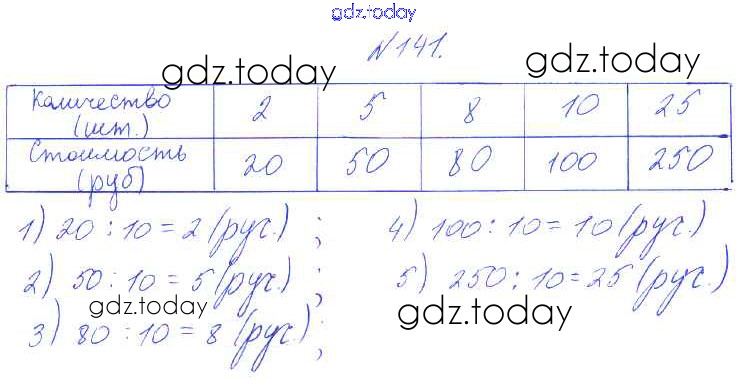 gdz.today
№141.
gdz.today gdz.today
Количество (шт.) 2 5 8 10 25
Стоимость (руб) 20 50 80 100 250
1) 20 : 10 = 2 (руч.) ; 4) 100 : 10 = 10 (руч.)
2) 50 : 10 = 5 (руч.) ; 5) 250 : 10 = 25 (руч.)
gdz.today gdz.today
3) 80 : 10 = 8 (руч.) ;